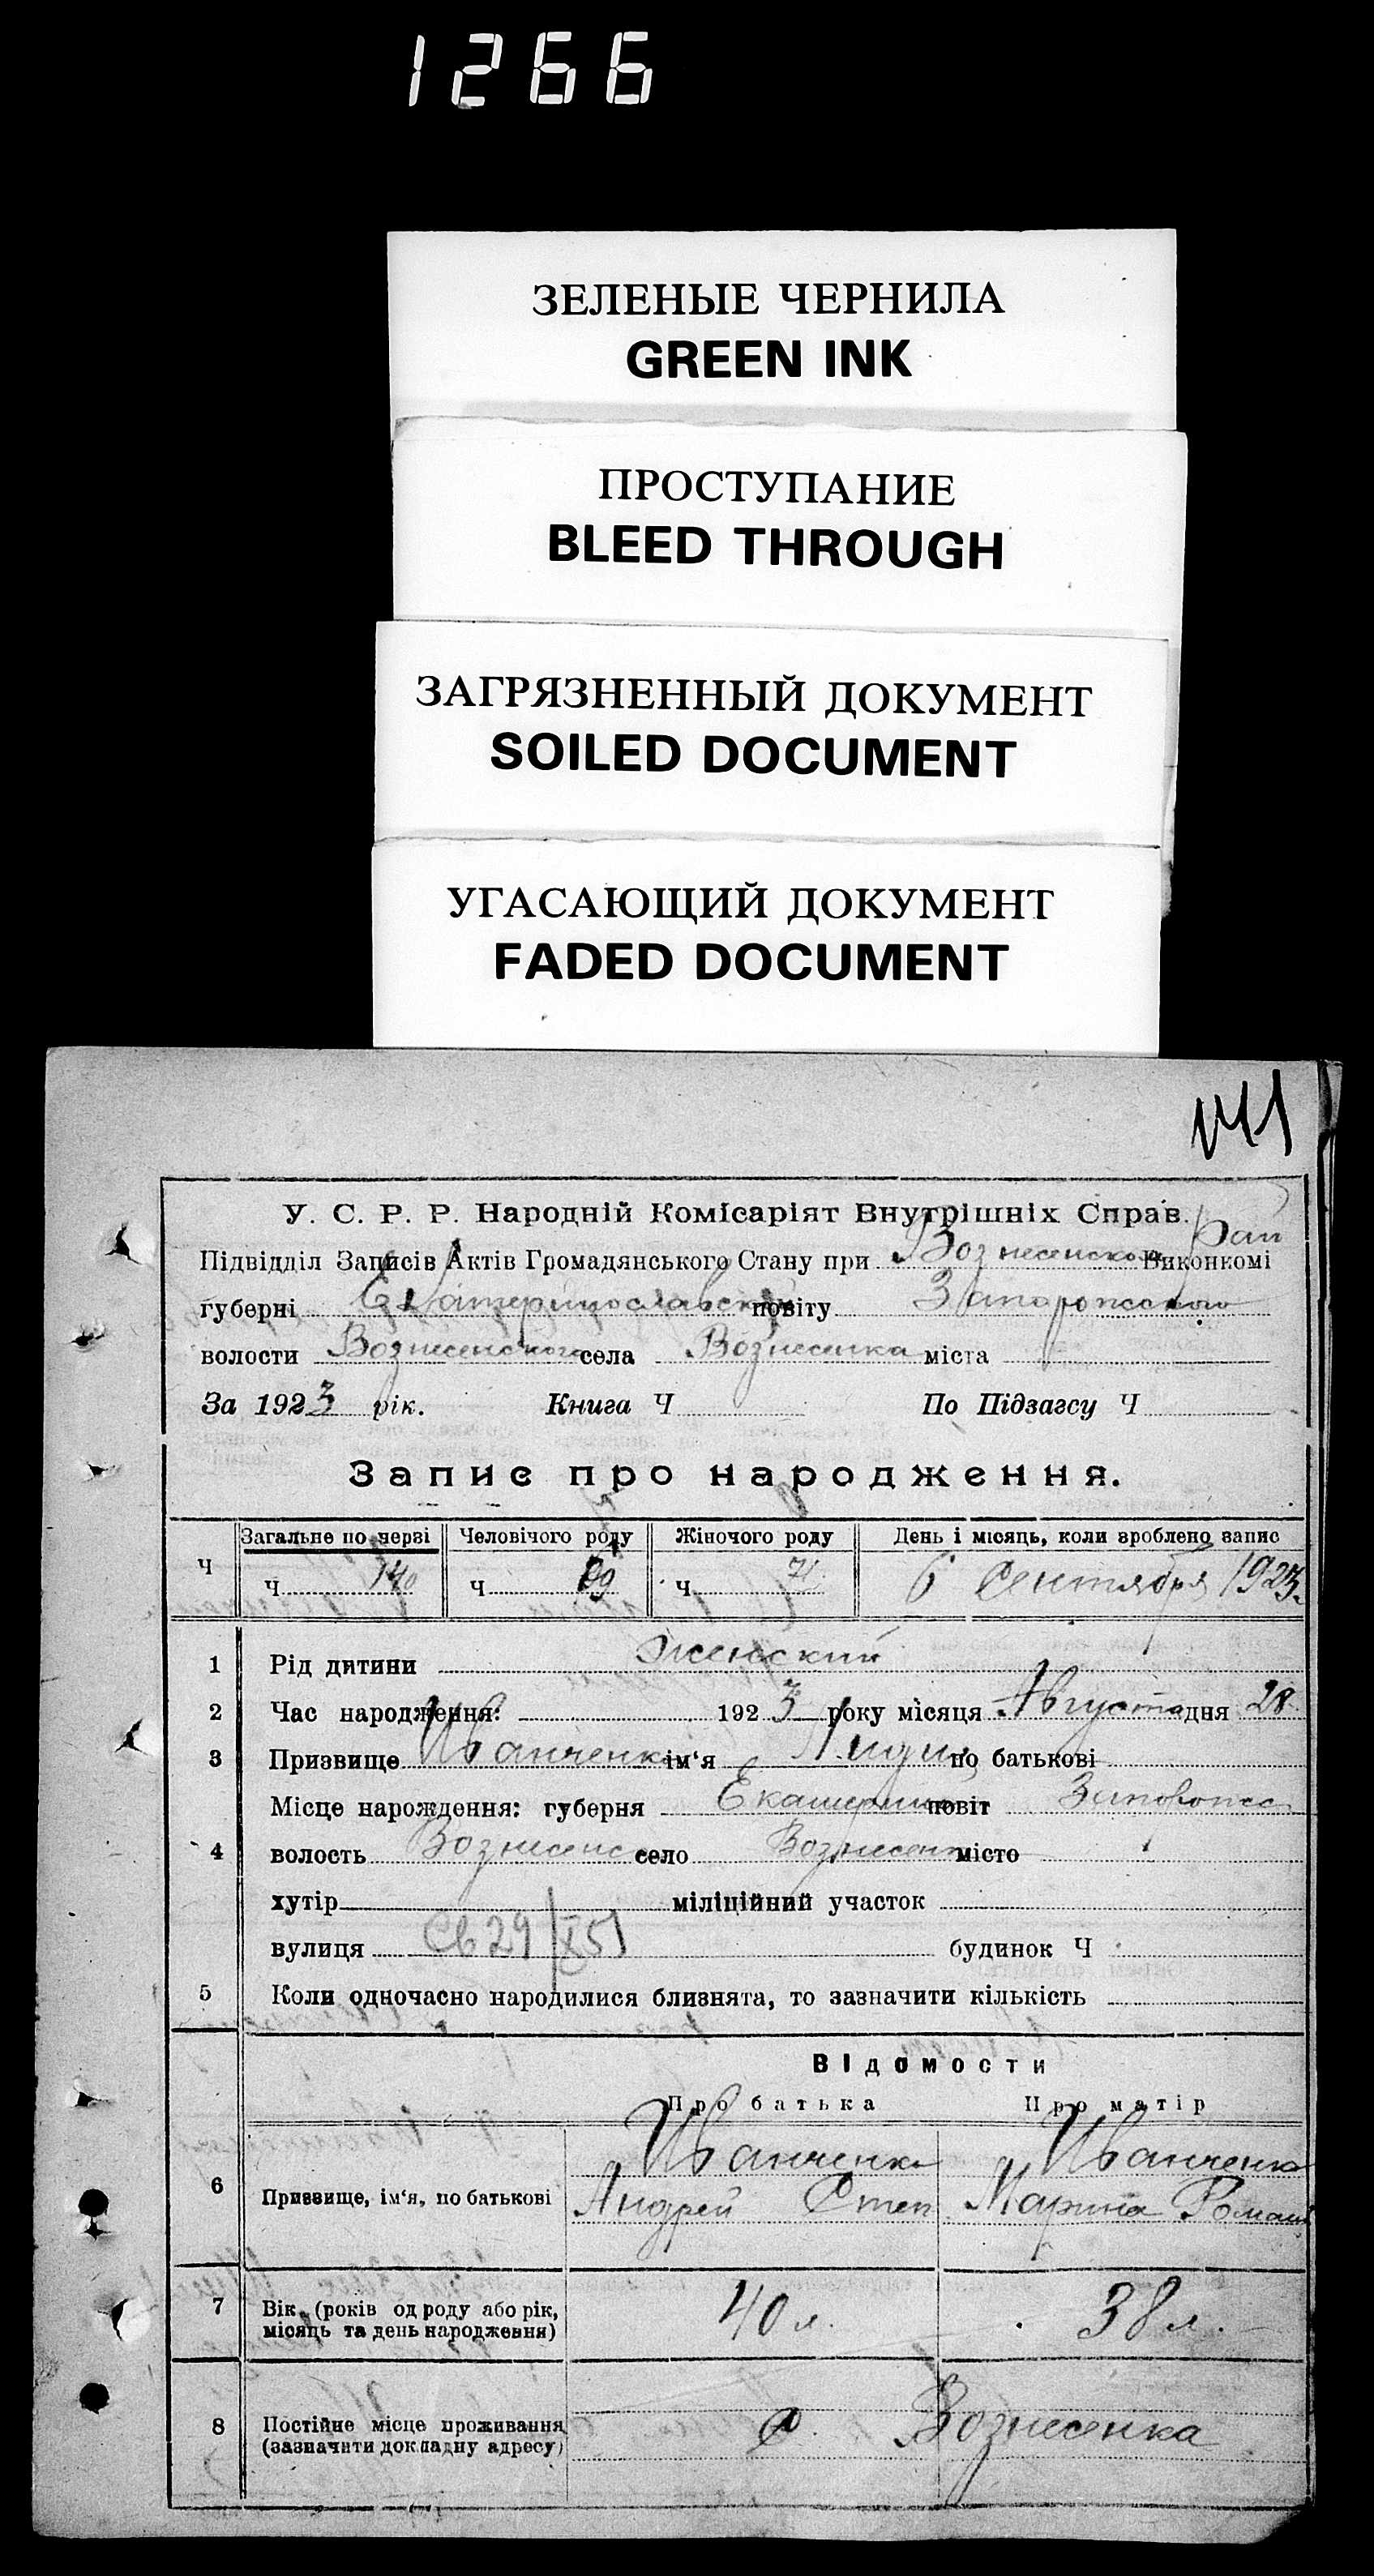 1266
ЗЕЛЕНЫЕ ЧЕРНИЛА
GREEN INK
ПРОСТУПАНИЕ
BLEED THROUGH
ЗАГРЯЗНЕННЫЙ ДОКУМЕНТ
SOILED DOCUMENT
УГАСАЮЩИЙ ДОКУМЕНТ
FADED DOCUMENT
141
У. С. Р. Р. Народній Комісаріят Внутрішніх Справ.
Підвідділ Записів Актів Громадянського Стану при Вознесенском Рай Виконкомі
губерні Екатеринославской повіту Запорожского
волости Вознесенского села Вознесенка міста
За 1923 рік. Книга Ч По Підзагсу Ч
Запис про народження.
Ч Загальне по черзі Человічого роду Жіночого роду День і місяць, коли зроблено запис
Ч 140 Ч 69 Ч 71 6 Сентября 1923.
1 Рід дитини женский
2 Час народження: 1923 року місяця Августа дня 28
3 Призвище Иванченко ім‘я Лидия по батькові
Місце нарождення: губерня Екатерин повіт Запорожс
4 волость Вознесенс село Вознесен місто
хутір міліційний участок
вулиця Св 29/XI 51 будинок Ч
5 Коли одночасно народилися близнята, то зазначити кількість
Відомости
Про батька Про матір
Иванченко Иванченко
6 Призвище, ім‘я, по батькові Андрей Степ Марина Роман
7 Вік (років од роду або рік, місяць та день народження) 40 л. 38 л.
8 Постійне місце проживання (зазначити докладну адресу) с. Вознесенка